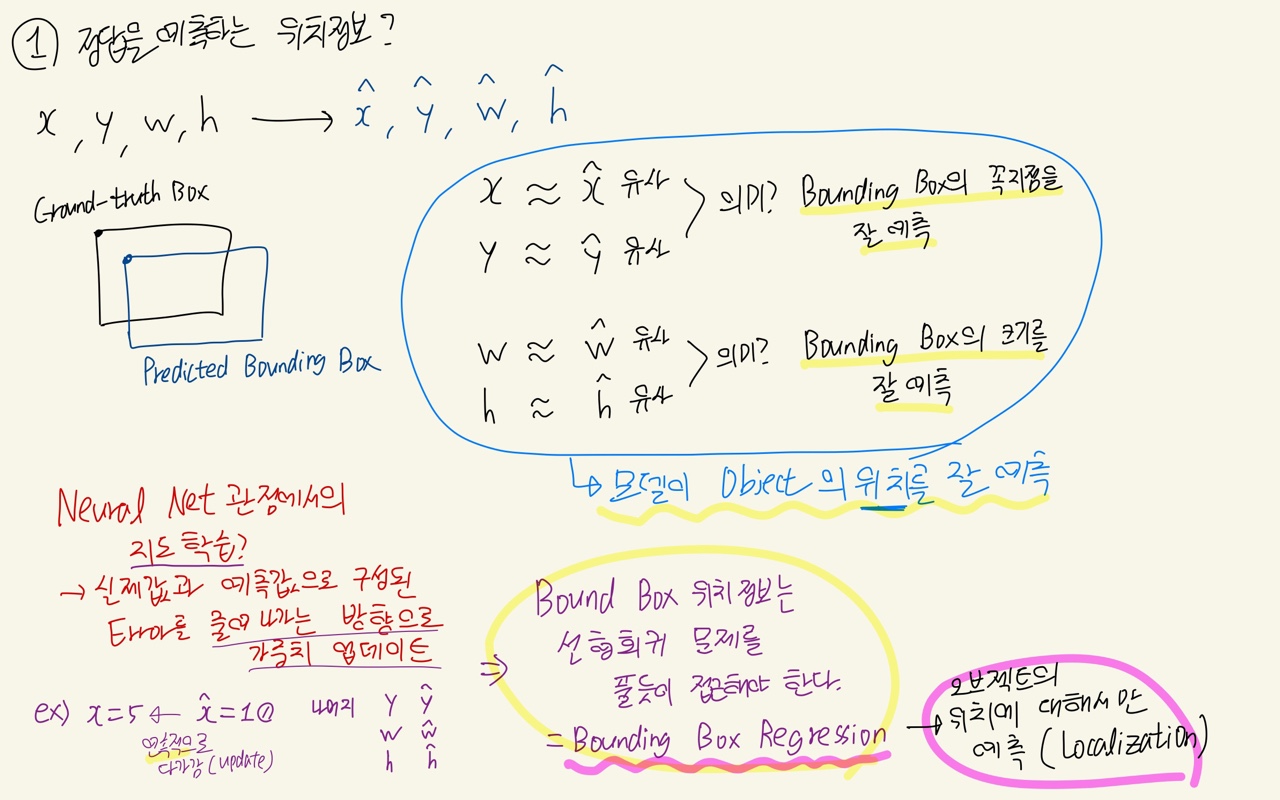 ① 정답을 예측하는 위치정보?
x, y, w, h → x̂, ŷ, ŵ, ĥ
Ground-truth Box
Predicted Bounding Box
x ≈ x̂ 유사
y ≈ ŷ 유사
의미? Bounding Box의 꼭지점을
잘 예측
w ≈ ŵ 유사
h ≈ ĥ 유사
의미? Bounding Box의 크기를
잘 예측
↳ 모델이 Object의 위치를 잘 예측
Neural Net 관점에서의
지도 학습?
→ 실제값과 예측값으로 구성된
Error를 줄여 나가는 방향으로
가중치 업데이트
ex) x=5 ← x̂=10
연속적으로
다가감 (update)
나머지 y ŷ
w ŵ
h ĥ
⇒ Bound Box 위치정보는
선형회귀 문제를
풀듯이 접근해야 한다.
= Bounding Box Regression
→ 오브젝트의
위치에 대해서만
예측 (Localization)